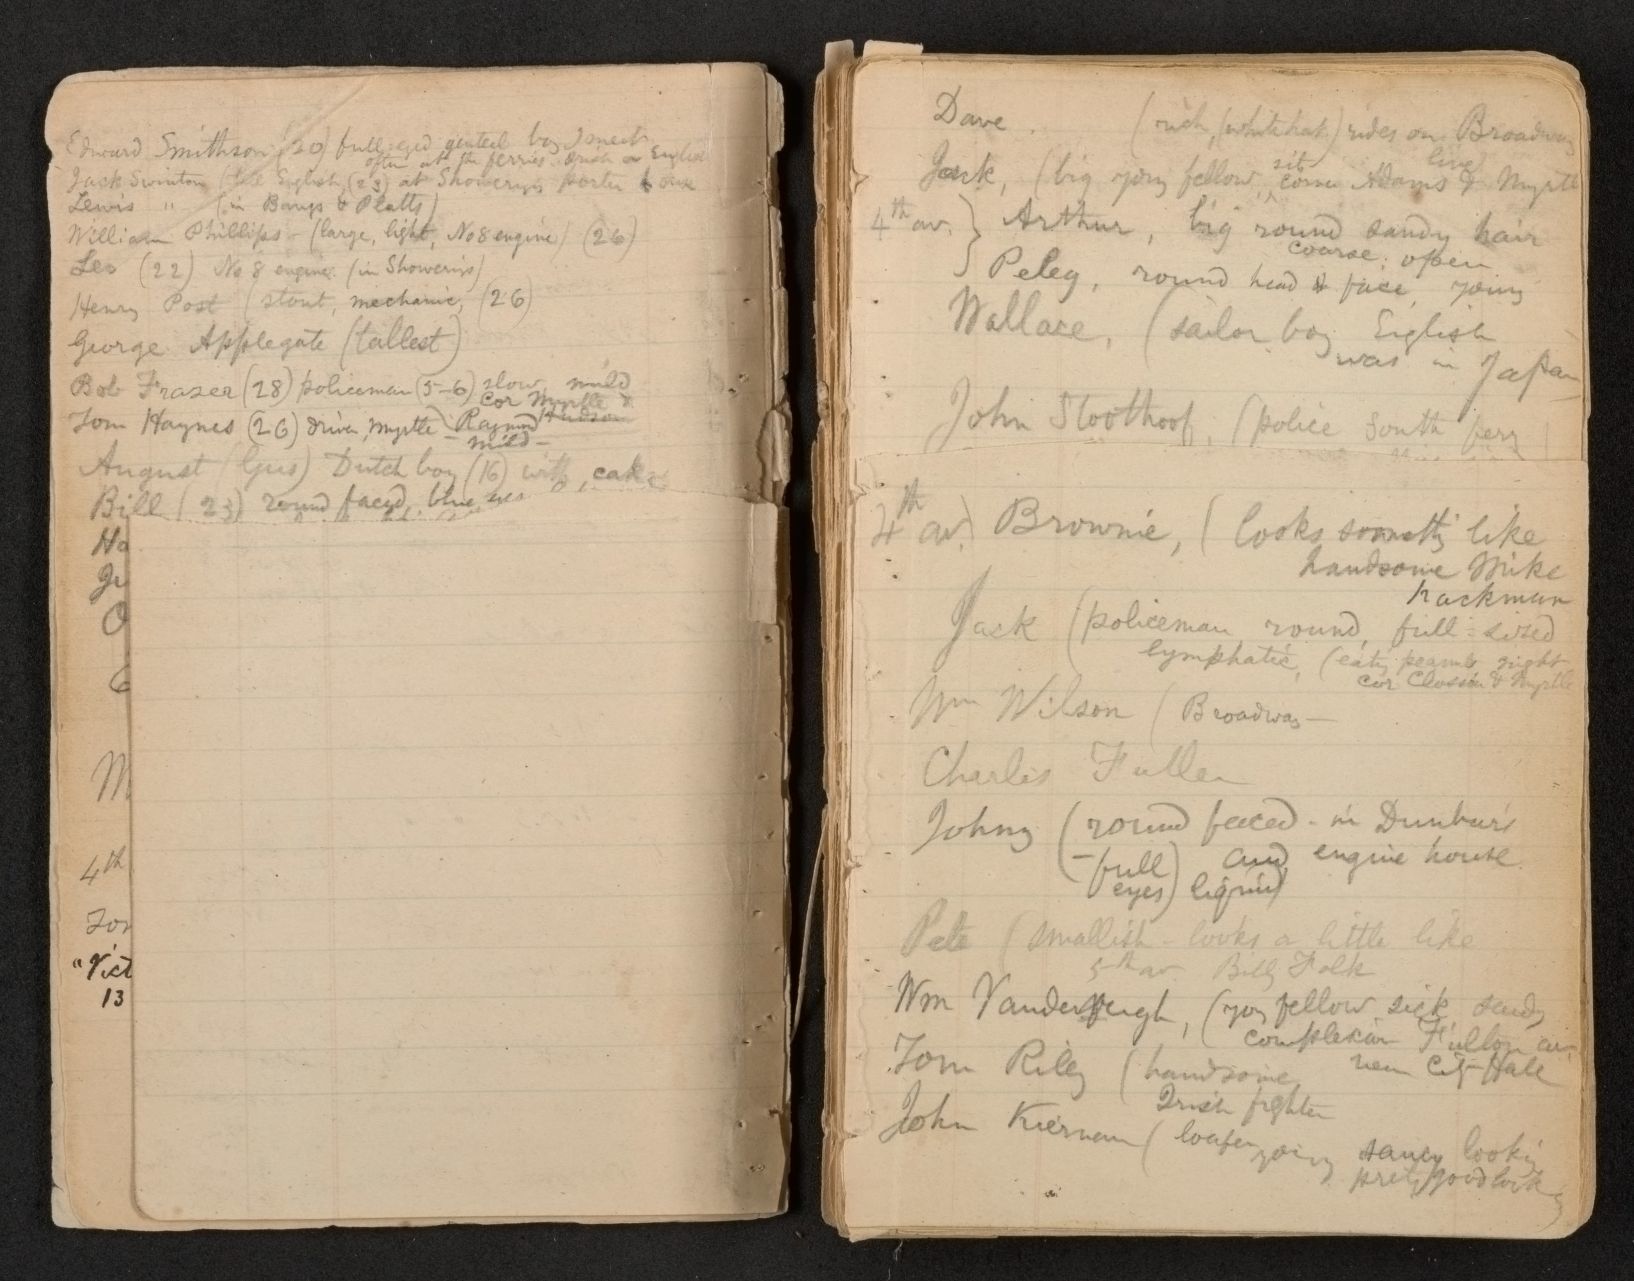 Edward Smithson (20) full eyed genteel boy I meet
often at the ferries drish or English
Jack Swinton English, (23) at Showery's porter house
Lewis " (in Bangs & Platts)
William Phillips - (large, light, No 8 engine) (26)
Leo (22) No 8 engine (in Showerys)
Henry Post (stout, mechanic, (26)
George Applegate (tallest)
Bob Frazer (28) policeman (5-6) slow, mild
cor Myrtle &
Tom Haynes (26) driver, Myrtle - Raymond Hudson
mild -
August (Gus) Dutch boy (16) with, cake
Bill (23) round faced, blue eyes
Ho
O
M
4th
Tor
"Vict
13
Dave. (rich, (white hat) rides on Broadway
Jack, (big young fellow, sit live
corner Adams & Myrtle
4th av. } Arthur, big round sandy hair
coarse, open
Peleg, round head & face, young
Wallace, (sailor boy English
was in Japan
John Stoothoof, (police South ferry
4th av.) Brownie, (looks someth'g like
handsome Mike
hackman
Jack (policeman, round, full-sized
lymphatic, (eat'g peanuts night
cor Classon & Myrtle
Wm Wilson (Broadway -
Charles Fuller
Johny (round faced - in Dunbar's
- full and engine house
eyes) liquid)
Pete (smallish - looks a little like
5th av Billy Folk
Wm Vandervergh, (yo'g fellow, sick, sandy
complexion Fulton av.
near City Hall
Tom Riley (handsome,
Irish fighter
John Kiernan (loafer
young saucy looki'g
pretty goodlook'g